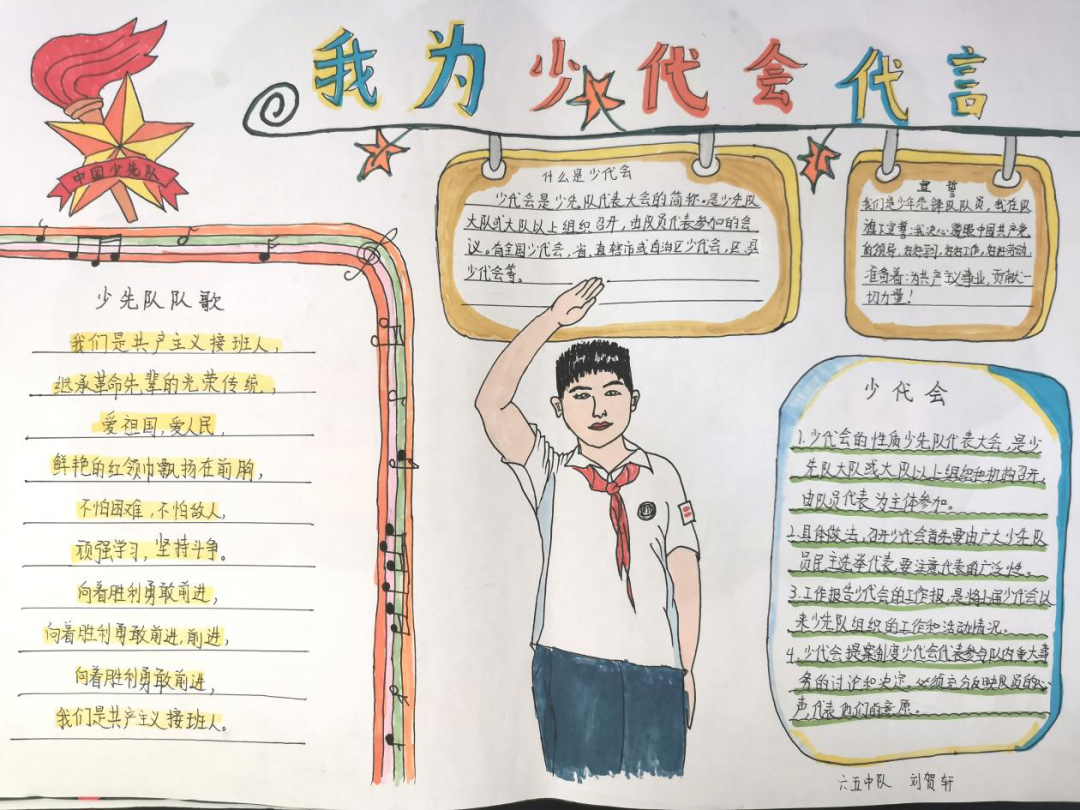 我为少代会代言
中国少先队
少先队队歌
我们是共产主义接班人，
继承革命先辈的光荣传统，
爱祖国，爱人民，
鲜艳的红领巾飘扬在前胸，
不怕困难，不怕敌人，
顽强学习，坚持斗争。
向着胜利勇敢前进，
向着胜利勇敢前进，前进，
向着胜利勇敢前进，
我们是共产主义接班人。
什么是少代会
少代会是少先队代表大会的简称。是少先队
大队或大队以上组织召开，由队员代表参加的会
议。有全国少代会，省、直辖市或自治区少代会，区、县
少代会等。
宣誓
我们是少年先锋队队员，我在队
旗下宣誓：我决心遵照中国共产党
的领导，好好学习，好好工作，好好劳动，
准备着：为共产主义事业，贡献一
切力量！
少代会
1.少代会的性质少先队代表大会，是少
先队大队或大队以上组织和机构召开，
由队员代表为主体参加。
2.具体做法，召开少代会首先要由广大少先队
员民主选举代表，要注意代表的广泛性。
3.工作报告少代会的工作报，是将上届少代会以
来少先队组织的工作和活动情况。
4.少代会提案制度少代会代表参与队内重大事
务的讨论和决定，必须充分反映队员的心
声，代表他们的意愿。
六五中队 刘贺轩